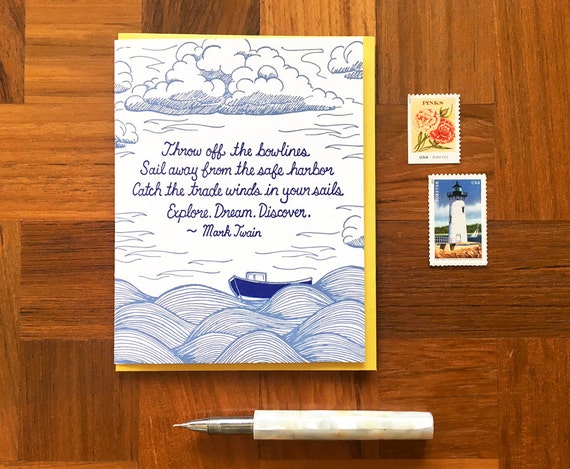 Throw off the bowlines
Sail away from the safe harbor
Catch the trade winds in your sails
Explore. Dream. Discover.
~ Mark Twain
PINKS
USA
FOREVER USA